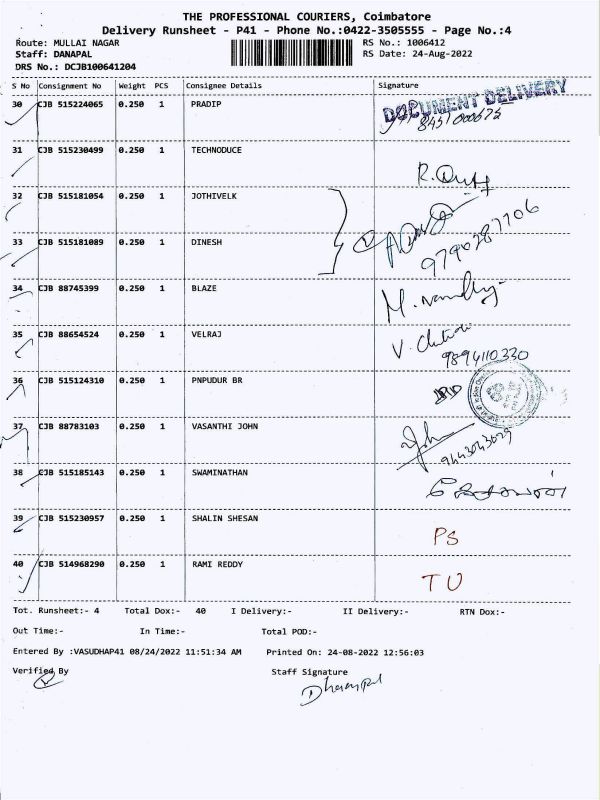 THE PROFESSIONAL COURIERS, Coimbatore
Delivery Runsheet - P41 - Phone No.:0422-3505555 - Page No.:4
Route: MULLAI NAGAR RS No.: 1006412
Staff: DANAPAL RS Date: 24-Aug-2022
DRS No.: DCJB100641204
S No Consignment No Weight PCS Consignee Details Signature
30 CJB 515224065 0.250 1 PRADIP DOCUMENT DELIVERY
31 CJB 515230499 1 0.250 1 TECHNODUCE
32 CJB 515181054 0.250 1 JOTHIVELK
33 CJB 515181089 0.250 1 DINESH 9790287706
34 CJB 88745399 0.250 1 BLAZE
35 CJB 88654524 0.250 1 VELRAJ 9894110330
36 CJB 515124310 0.250 1 PNPUDUR BR
37 CJB 88783103 0.250 1 VASANTHI JOHN
38 CJB 515185143 0.250 1 SWAMINATHAN
39 CJB 515230957 0.250 1 SHALIN SHESAN PS
40 CJB 514968290 0.250 1 RAMI REDDY TU
Tot. Runsheet:- 4 Total Dox:- 40 I Delivery:- II Delivery:- RTN Dox:-
Out Time:- In Time:- Total POD:-
Entered By :VASUDHAP41 08/24/2022 11:51:34 AM Printed On: 24-08-2022 12:56:03
Verified By Staff Signature